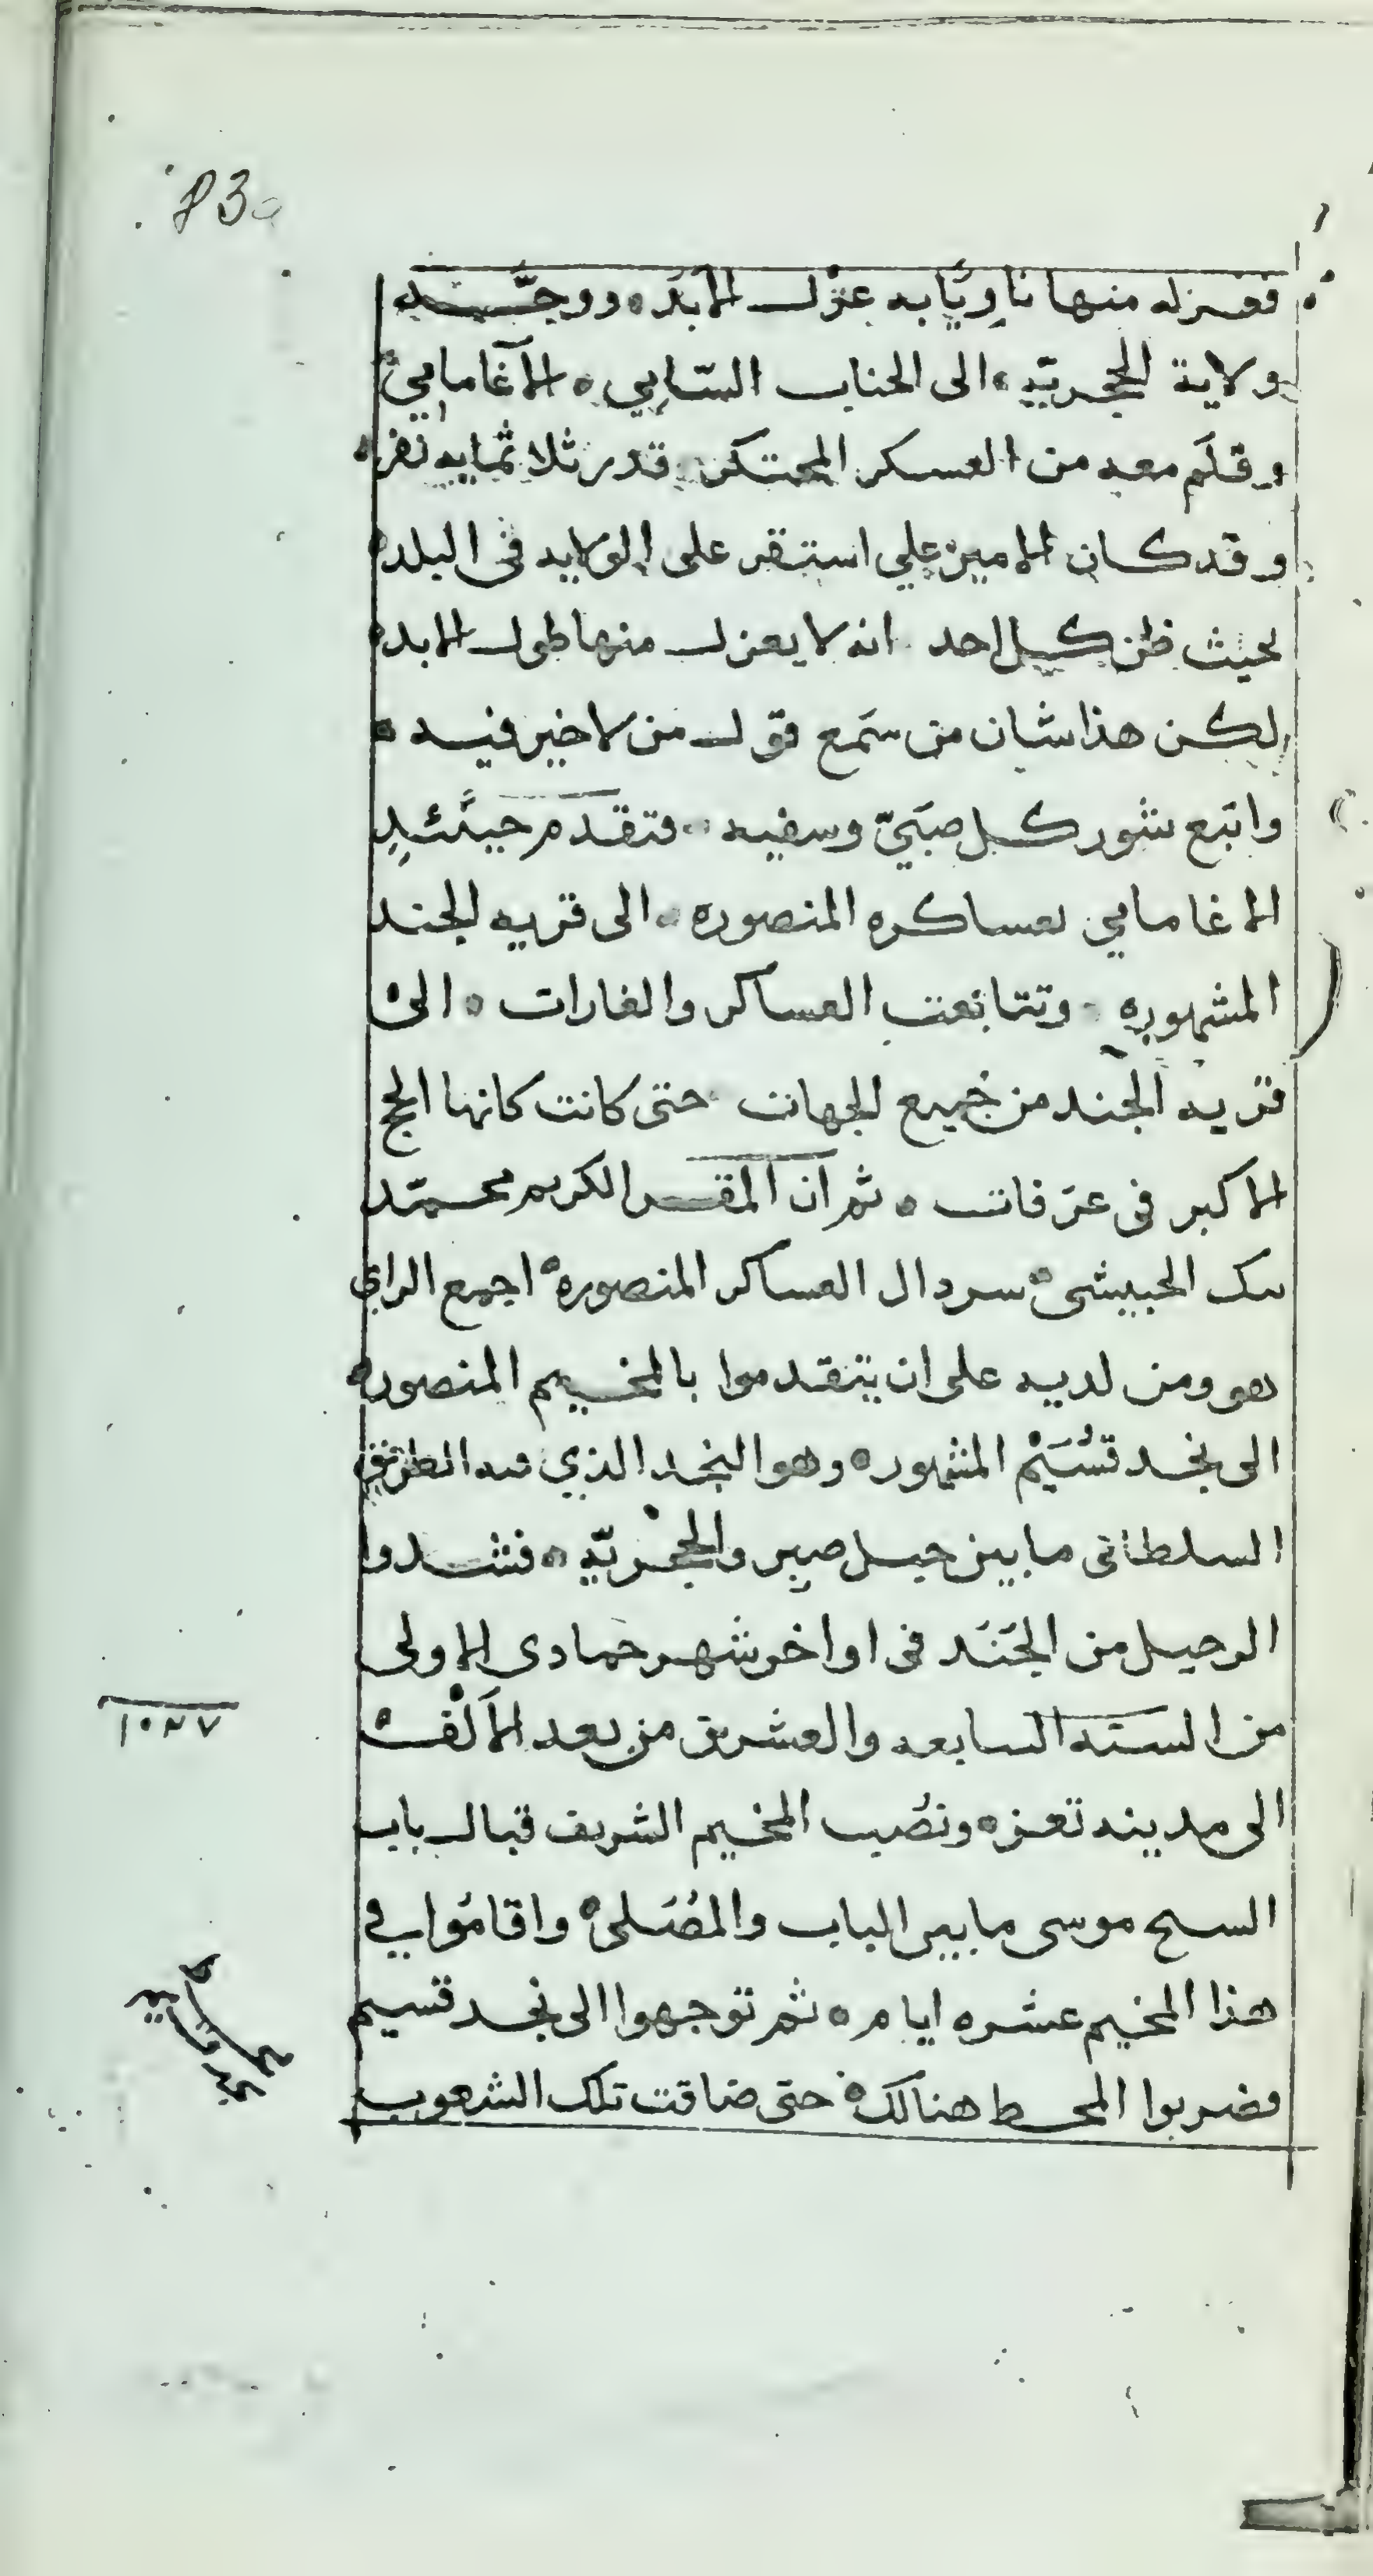 83a
فعزله منها ناويًا به عزل الابد ووجّه
ولاية الحجريّه الى الجناب السّامي الآغا مامي
وقلّم معه من العسكر المحتكر قدر ثلاثمايه نفر
وقد كان الامير علي استقر على الولايه في البلد
بحيث ظن كل احد انه لا يعزل منها طول الابد
لكن هذا شان من سَمع قول من لا خير فيه
واتبع شور كل صبَيّ وسفيه فتقدم حينئذِ
الاغا مامي بعساكره المنصوره الى قريه الجند
المشهوره وتتابعت العساكر والغارات الى
قريه الجند من جميع الجهات حتى كانت كانها الحج
الاكبر في عرَفات ثم ان المقر الكريم محمّد
بيك الحبيشي سردال العساكر المنصوره اجمع الراي
هو ومن لديه على ان يتقدموا بالمخيم المنصوره
الى نجد قسُيَمْ المشهوره وهو النجد الذي فيه الطريق
السلطاني ما بين جبل صبِر والحجْريّه فشدوا
الرحيل من الجَنَد في اواخر شهر جمادى الاولى
من السنه السابعه والعشرين من بعد الاَلْف
١٠٢٧
الى مدينه تعز ونصُب المخيم الشريف قبال باب
السيح موسى ما بين الباب والمصُلى واقامُوا في
هذا المخيم عشره ايام ثم توجهوا الى نجد قسيم
فضربوا المحط هنالك حتى ضاقت تلك الشعوب
نجد قسيم